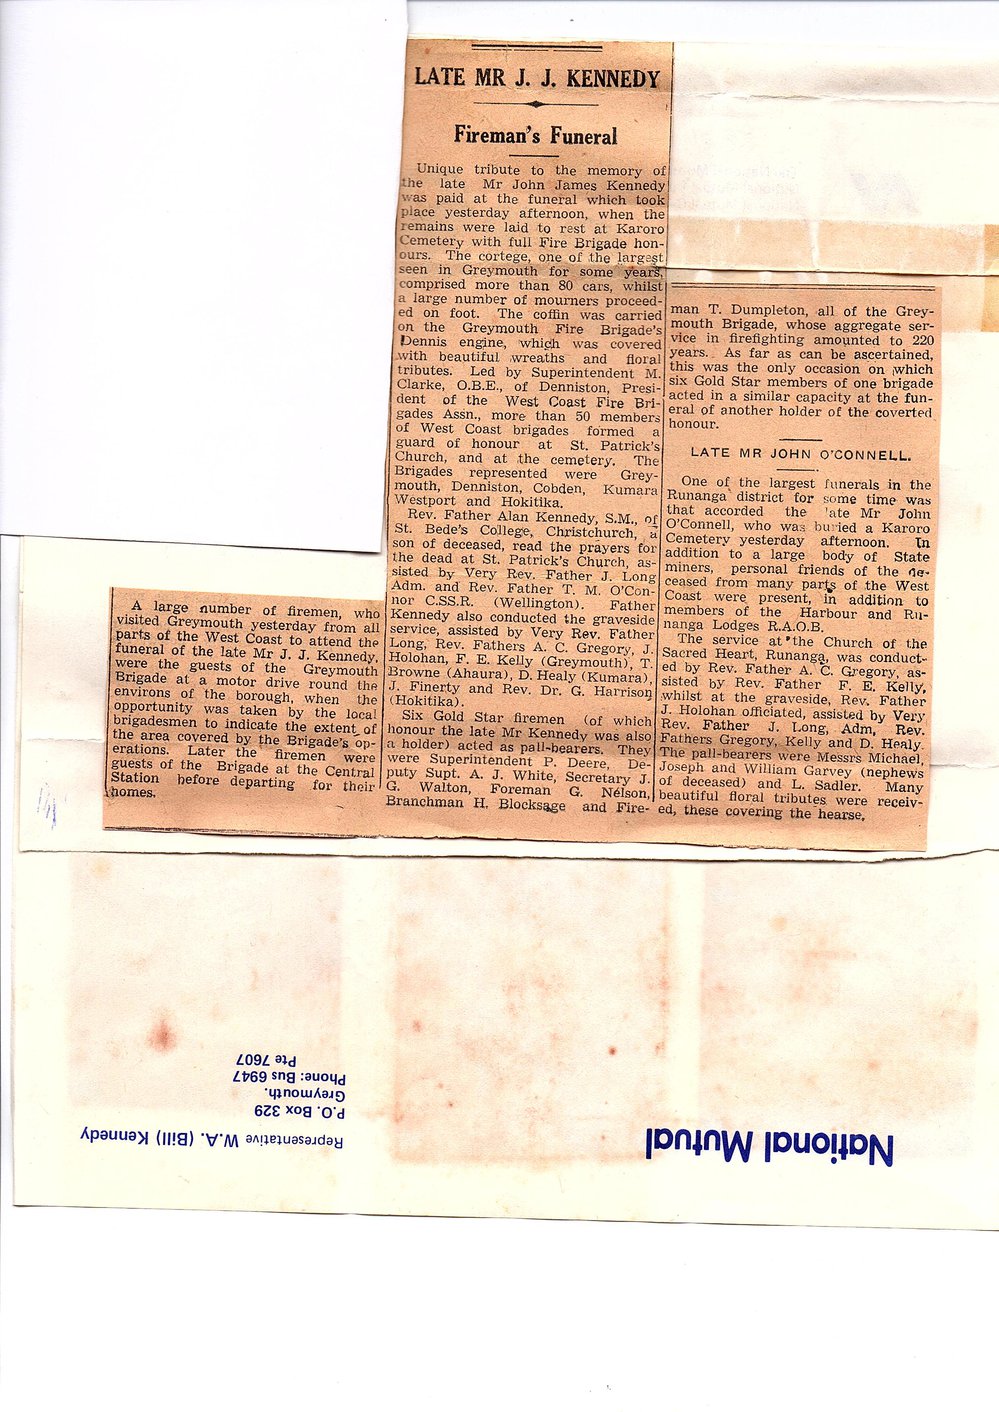 LATE MR J. J. KENNEDY
Fireman's Funeral
Unique tribute to the memory of
the late Mr John James Kennedy
was paid at the funeral which took
place yesterday afternoon, when the
remains were laid to rest at Karoro
Cemetery with full Fire Brigade hon-
ours. The cortege, one of the largest
seen in Greymouth for some years,
comprised more than 80 cars, whilst
a large number of mourners proceed-
ed on foot. The coffin was carried
on the Greymouth Fire Brigade's
Dennis engine, which was covered
with beautiful wreaths and floral
tributes. Led by Superintendent M.
Clarke, O.B.E., of Denniston, Presi-
dent of the West Coast Fire Bri-
gades Assn., more than 50 members
of West Coast brigades formed a
guard of honour at St. Patrick's
Church, and at the cemetery. The
Brigades represented were Grey-
mouth, Denniston, Cobden, Kumara
Westport and Hokitika.
Rev. Father Alan Kennedy, S.M., of
St. Bede's College, Christchurch, a
son of deceased, read the prayers for
the dead at St. Patrick's Church, as-
sisted by Very Rev. Father J. Long
Adm. and Rev. Father T. M. O'Con-
nor C.SS.R. (Wellington). Father
Kennedy also conducted the graveside
service, assisted by Very Rev. Father
Long, Rev. Fathers A. C. Gregory, J.
Holohan, F. E. Kelly (Greymouth), T.
Browne (Ahaura), D. Healy (Kumara),
J. Finerty and Rev. Dr. G. Harrison
(Hokitika).
Six Gold Star firemen (of which
honour the late Mr Kennedy was also
a holder) acted as pall-bearers. They
were Superintendent P. Deere, De-
puty Supt. A. J. White, Secretary J.
G. Walton, Foreman G. Nelson,
Branchman H. Blocksage and Fire-
man T. Dumpleton, all of the Grey-
mouth Brigade, whose aggregate ser-
vice in firefighting amounted to 220
years. As far as can be ascertained,
this was the only occasion on which
six Gold Star members of one brigade
acted in a similar capacity at the fun-
eral of another holder of the coverted
honour.
LATE MR JOHN O'CONNELL.
One of the largest funerals in the
Runanga district for some time was
that accorded the late Mr John
O'Connell, who was buried a Karoro
Cemetery yesterday afternoon. In
addition to a large body of State
miners, personal friends of the de-
ceased from many parts of the West
Coast were present, in addition to
members of the Harbour and Ru-
nanga Lodges R.A.O.B.
The service at the Church of the
Sacred Heart, Runanga, was conduct-
ed by Rev. Father A. C. Gregory, as-
sisted by Rev. Father F. E. Kelly,
whilst at the graveside, Rev. Father
J. Holohan officiated, assisted by Very
Rev. Father J. Long, Adm, Rev.
Fathers Gregory, Kelly and D. Healy.
The pall-bearers were Messrs Michael,
Joseph and William Garvey (nephews
of deceased) and L. Sadler. Many
beautiful floral tributes were receiv-
ed, these covering the hearse.
A large number of firemen, who
visited Greymouth yesterday from all
parts of the West Coast to attend the
funeral of the late Mr J. J. Kennedy,
were the guests of the Greymouth
Brigade at a motor drive round the
environs of the borough, when the
opportunity was taken by the local
brigadesmen to indicate the extent of
the area covered by the Brigade's op-
erations. Later the firemen were
guests of the Brigade at the Central
Station before departing for their
homes.
National Mutual
Representative W.A. (Bill) Kennedy
P.O. Box 329
Greymouth.
Phone: Bus 6947
Pte 7607